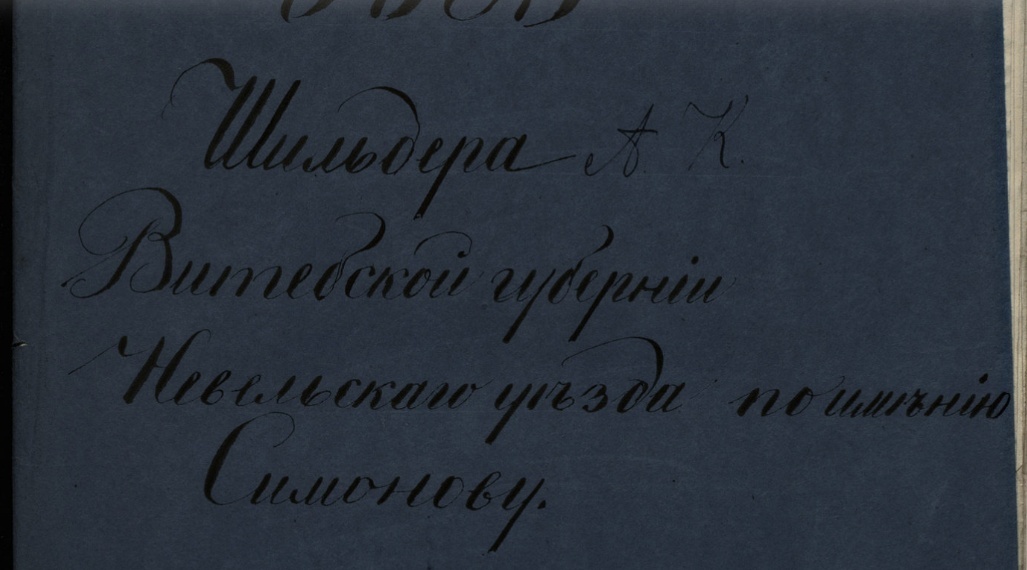 Шильдера А. К.
Витебской губерніи
Невельскаго уѣзда по имѣнію
Симонову.